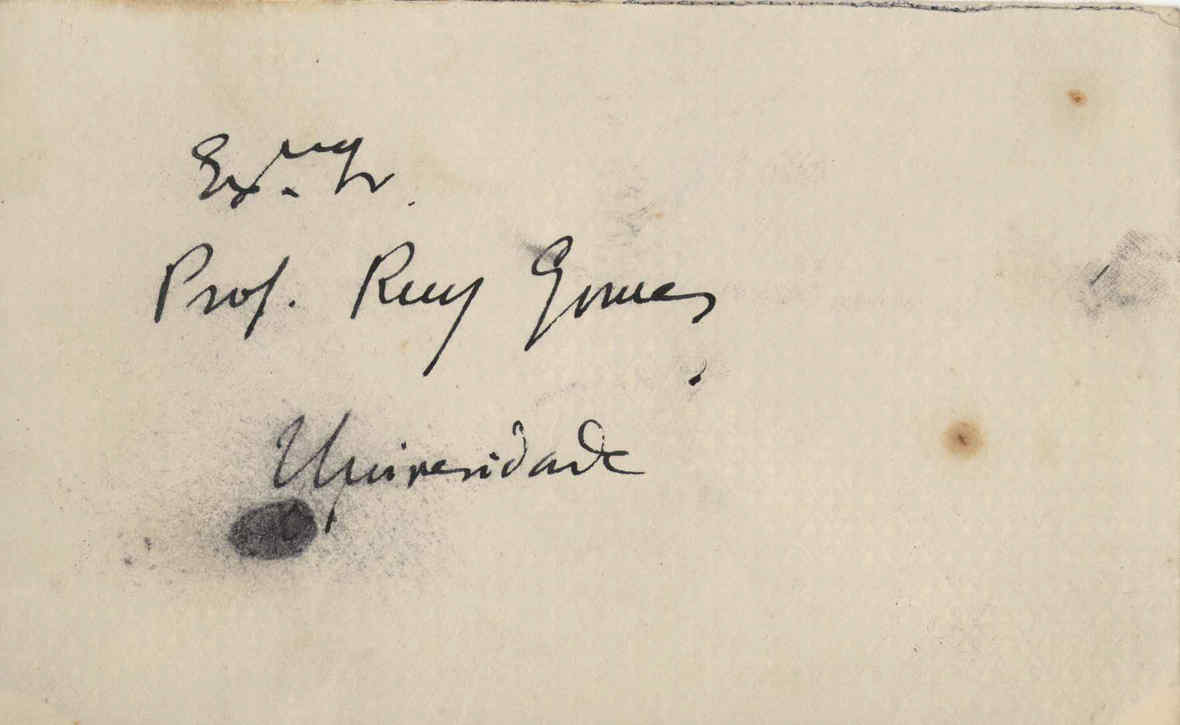 Ex.mo Sr.
Prof. Ruy Gomes
Universidade